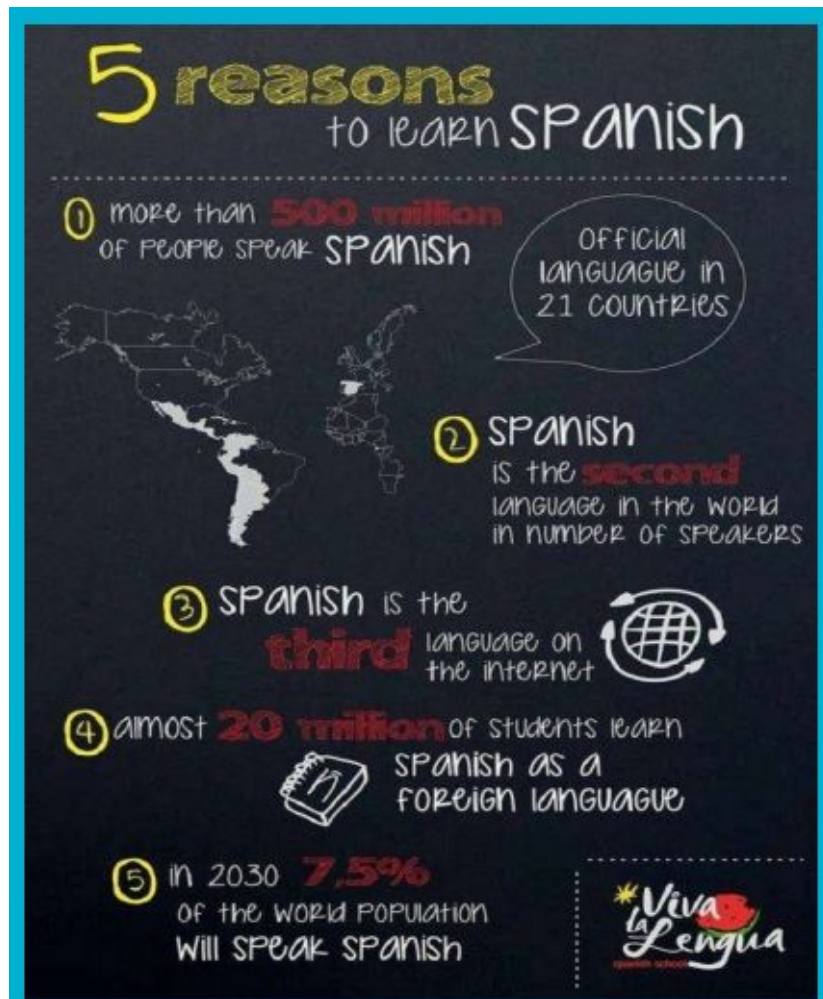 5 reasons
to learn Spanish
1 more than 500 million
of people speak Spanish
Official
languague in
21 countries
2 Spanish
is the second
language in the world
in number of speakers
3 Spanish is the
third language on
the internet
4 almost 20 million of students learn
Spanish as a
foreign languague
5 in 2030 7,5%
of the world population
will speak Spanish
Viva
la
Lengua
spanish school